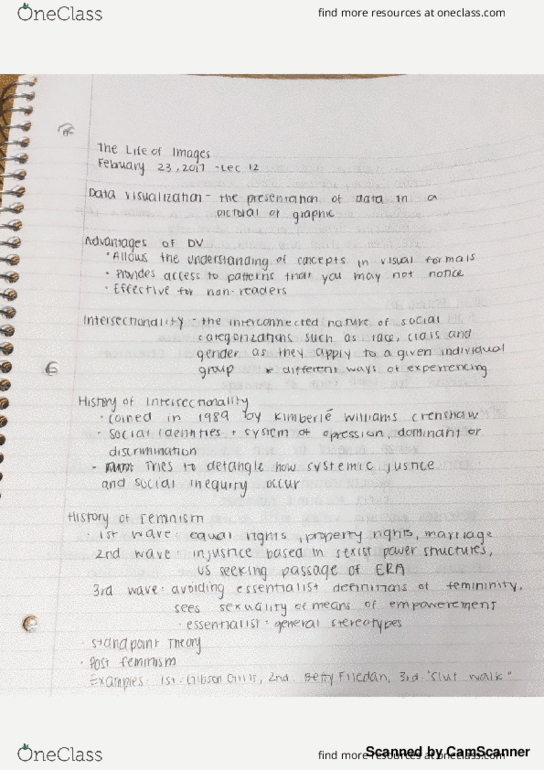 OneClass
find more resources at oneclass.com
The Life of Images
February 23, 2017 - Lec 12
Data visualization - the presentation of data in a
pictorial or graphic
Advantages of DV
· Allows the understanding of concepts in visual formats
· Provides access to patterns that you may not notice
· Effective for non-readers
Intersectionality - the interconnected nature of social
categorizations such as race, class and
gender as they apply to a given individual
group * different ways of experiencing
History of Intersectionality
· coined in 1989 by Kimberlé Williams Crenshaw
· social identities + system of opression, dominant or
discrimination
· Tries to detangle how systemic justice
and social inequity occur
History of Feminism
· 1st wave: equal rights, property rights, marriage
2nd wave: injustice based in sexist power structures,
US seeking passage of ERA
3rd wave: avoiding essentialist definitions of femininity,
sees sexuality as means of empowerment
· essentialist: general stereotypes
· Standpoint Theory
· Post feminism
· Examples: 1st: Gibson Girls, 2nd: Betty Friedan, 3rd "Slut walk"
OneClass
find more resources at oneclass.com
Scanned by CamScanner